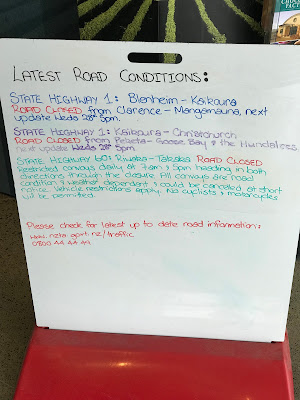 LATEST ROAD CONDITIONS:
STATE HIGHWAY 1: Blenheim - Kaikoura
ROAD CLOSED from Clarence - Mangamaunu, next
update Weds 28th 5pm.
STATE HIGHWAY 1: Kaikoura - Christchurch
ROAD CLOSED from Peketa - Goose Bay & the Hundalees
next update Weds 28th 5pm.
STATE HIGHWAY 60: Riwaka - Takaka ROAD CLOSED
Restricted convoys daily at 7am & 5pm heading in both
directions through the closure. All convoys are road
condition & weather dependent & could be canceled at short
notice. Vehicle restrictions apply. No cyclists & motorcycles
will be permitted.
Please check for latest up to date road information:
www.nzta.govt.nz/traffic
0800 44 44 49